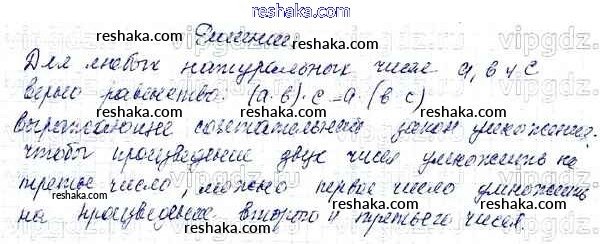 reshaka.com
Решение:
reshaka.com
Для любых натуральных чисел a, b и c
верно равенство: (a·b)·c=a·(b·c)
reshaka.com
выражающее сочетательный закон умножения:
чтобы произведение двух чисел умножить на
reshaka.com
третье число, можно первое число умножить
на произведение второго и третьего чисел.
reshaka.com